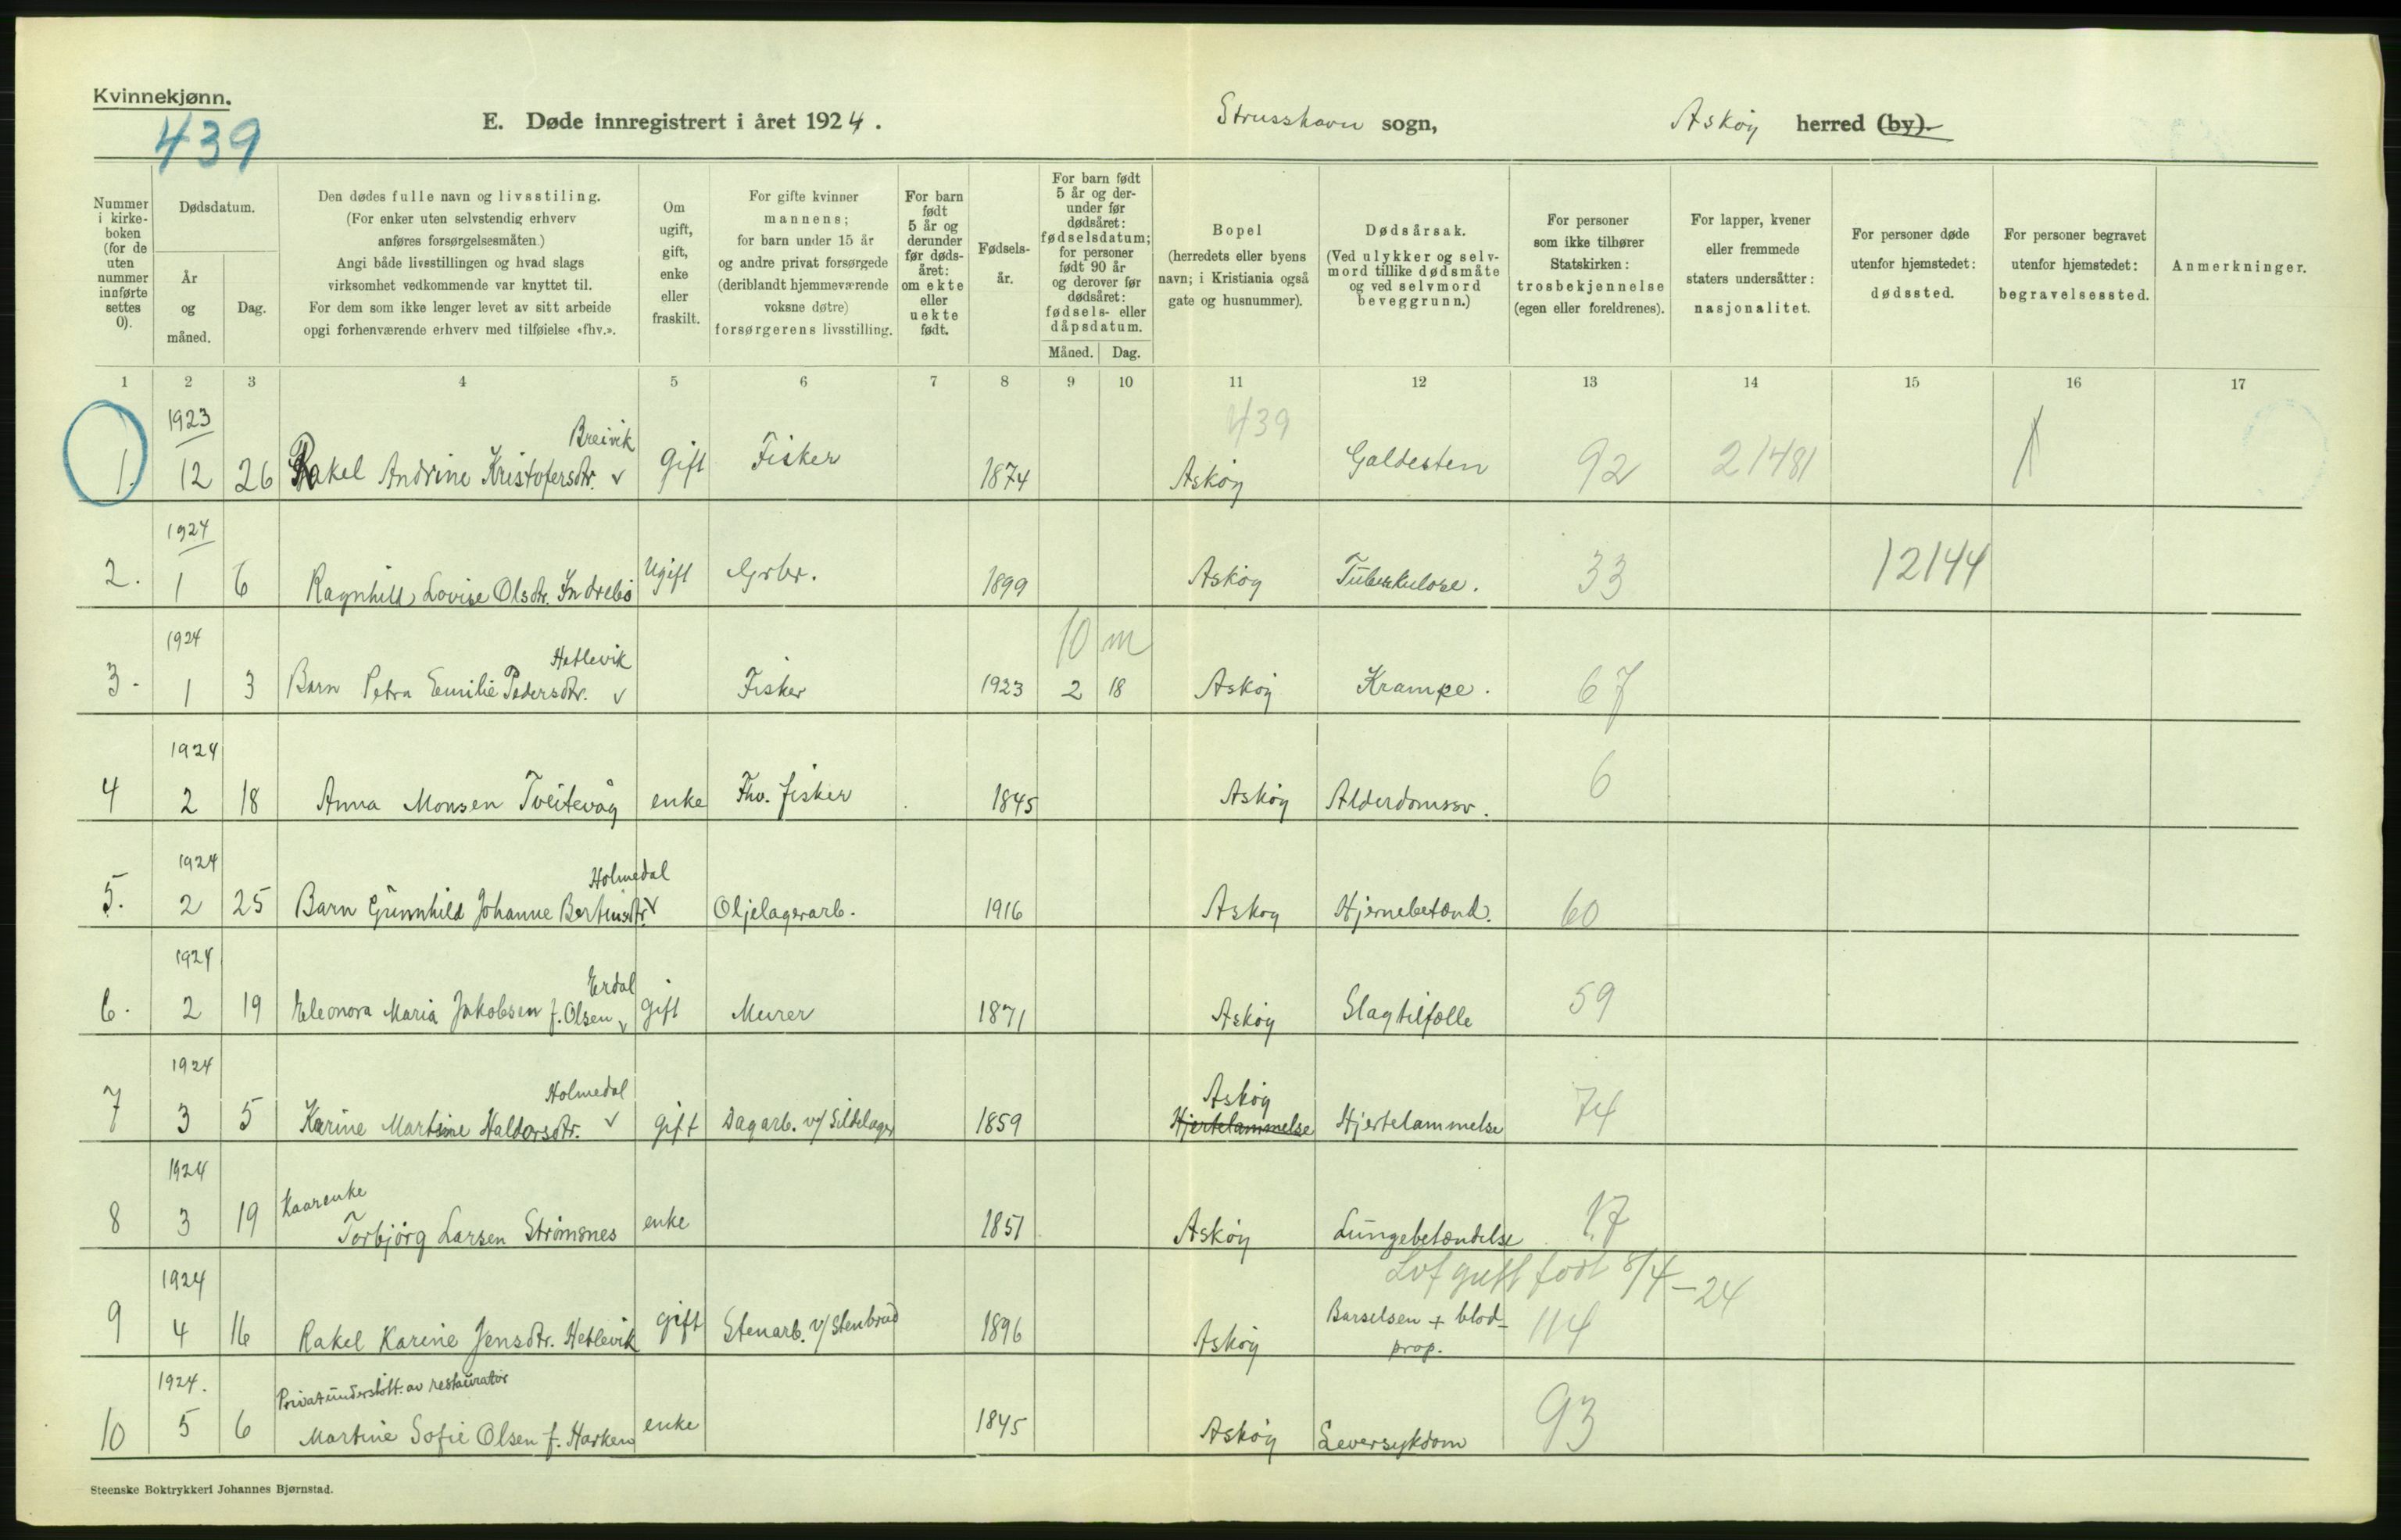 Kvinnekjønn.
439
E. Døde innregistrert i året 1924.
Strusshavn sogn,
Askøy herred (by).
Nummer i kirkeboken (for de uten nummer innførte settes 0).
Dødsdatum.
År og måned.
Dag.
Den dødes fulle navn og livsstiling.
(For enker uten selvstendig erhverv
anføres forsørgelsesmåten.)
Angi både livsstillingen og hvad slags
virksomhet vedkommende var knyttet til.
For dem som ikke lenger levet av sitt arbeide
opgi forhenværende erhverv med tilføielse «fhv.».
Om ugift, gift, enke eller fraskilt.
For gifte kvinner
mannens;
for barn under 15 år
og andre privat forsørgede
(deriblandt hjemmeværende
voksne døtre)
forsørgerens livsstilling.
For barn født 5 år og derunder før dødsåret: om ekte eller uekte født.
Fødselsår.
For barn født 5 år og derunder før dødsåret: fødselsdatum; for personer født 90 år og derover før dødsåret: fødsels- eller dåpsdatum.
Måned. Dag.
Bopel
(herredets eller byens
navn; i Kristiania også
gate og husnummer).
Dødsårsak.
(Ved ulykker og selvmord tillike dødsmåte
og ved selvmord
beveggrunn.)
For personer
som ikke tilhører
Statskirken:
trosbekjennelse
(egen eller foreldrenes).
For lapper, kvener
eller fremmede
staters undersåtter:
nasjonalitet.
For personer døde
utenfor hjemstedet:
dødssted.
For personer begravet
utenfor hjemstedet:
begravelsessted.
Anmerkninger.
1 2 3 4 5 6 7 8 9 10 11 12 13 14 15 16 17
1923 Breivik 439
1. 12 26 Rakel Andrine Kristofersdtr. v gift Fisker 1874 Askøy Galdesten 92 21481 1
1924
2. 1 6 Ragnhild Lovise Olsdtr. Indrebø Ugift Grbr. 1899 Askøy Tuberkulose. 33 12144
1924 Hetlevik 10 m
3. 1 3 Barn Petra Emilie Pedersdtr. v Fisker 1923 2 18 Askøy Krampe. 67
1924
4 2 18 Anna Monsen Tveitevåg enke Fhv. fisker 1845 Askøy Alderdomssv. 6
1924 Holmedal
5. 2 25 Barn Gunnhild Johanne Bertinsdtr. v Oljelagerarb. 1916 Askøy Hjernebetænd. 60
1924 Erdal
6. 2 19 Eleonora Maria Jakobsen f. Olsen v gift Murer 1871 Askøy Slagtilfælle 59
1924 Holmedal Askøy
7 3 5 Karine Martine Haldorsdtr. v gift Dagarb. v/ Sildelager 1859 Hjertelammelse Hjertelammelse 74
1924 Kaarenke
8 3 19 Torbjørg Larsen Strømsnes enke 1851 Askøy Lungebetændelse 17
1924 født 8/4-24
9 4 16 Rakel Karine Jensdtr. Hetlevik gift Stenarb. v/ Stenbrud 1896 Askøy Barselsen + blodprop. 114
1924. Privat understøtt. av restauratør
10 5 6 Martine Sofie Olsen f. Harken enke 1845 Askøy Leversykdom 93
Steenske Boktrykkeri Johannes Bjørnstad.